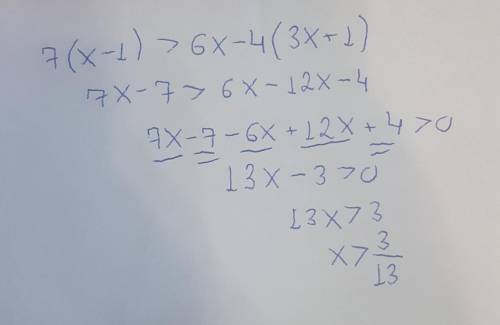 7(x-1) > 6x-4(3x+1)
7x-7 > 6x-12x-4
7x-7-6x+12x+4>0
13x-3>0
13x>3
x>3/13